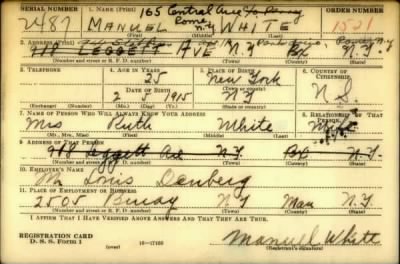 SERIAL NUMBER 1. NAME (Print) ORDER NUMBER
165 Central Ave
Rome N.Y
2487 MANUEL WHITE 1521
(First) (Middle) (Last)
2. ADDRESS (Print)
LEGGETT AVE N.Y. BX N.Y.
(Number and street or R. F. D. number) (Town) (County) (State)
3. TELEPHONE 4. AGE IN YEARS 5. PLACE OF BIRTH 6. COUNTRY OF CITIZENSHIP
25 New York
DATE OF BIRTH (Town or county)
2 1915 N.Y U.S.
(Exchange) (Number) (Mo.) (Day) (Yr.) (State or country)
7. NAME OF PERSON WHO WILL ALWAYS KNOW YOUR ADDRESS 8. RELATIONSHIP OF THAT PERSON
Mrs Ruth White
(Mr., Mrs., Miss) (First) (Middle) (Last)
9. ADDRESS OF THAT PERSON
Leggett Ave N.Y. Bx N.Y.
(Number and street or R. F. D. number) (Town) (County) (State)
10. EMPLOYER'S NAME
Louis Denberg
11. PLACE OF EMPLOYMENT OR BUSINESS
2505 N.Y Man N.Y.
(Number and street or R. F. D. number) (Town) (County) (State)
I AFFIRM THAT I HAVE VERIFIED ABOVE ANSWERS AND THAT THEY ARE TRUE.
REGISTRATION CARD
D. S. S. Form 1 16—17105 Manuel White
(Registrant's signature)